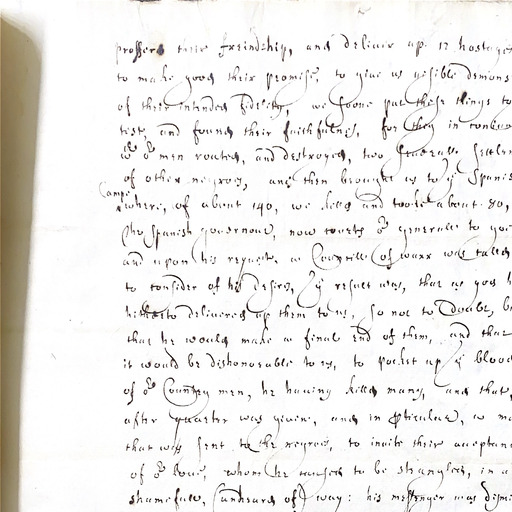 proffers their freindship, and deliuer up 12 hostages
to make good their promise, to give us visible demons
of their intended fidelity, we soone put these things to
test, and found their faithfulnes, for they in
wth or men routed, and destroyed, two severall settlem
of other negroes, and then brought us to ye Spanis
Campe
where, of about 140, we kild and tooke about 80,
The Spanish governour, now courts or generall to
and upon his request a Councill of warr was called
to consider of his desires, ye result was, that as god h
hitherto delivered up them to us, so not to doubt, b
that he would make a final end of them, and that
it would be dishonorable to us, to pocket up ye blood
of or Country men, he having killd many, and that
after quarter was given, and in pticular, a ma
that was sent to the negroes, to invite their acceptan
of or love, whom he caused to be strangled, in a
shamefull, (unheard of) way: his messenger was dismi